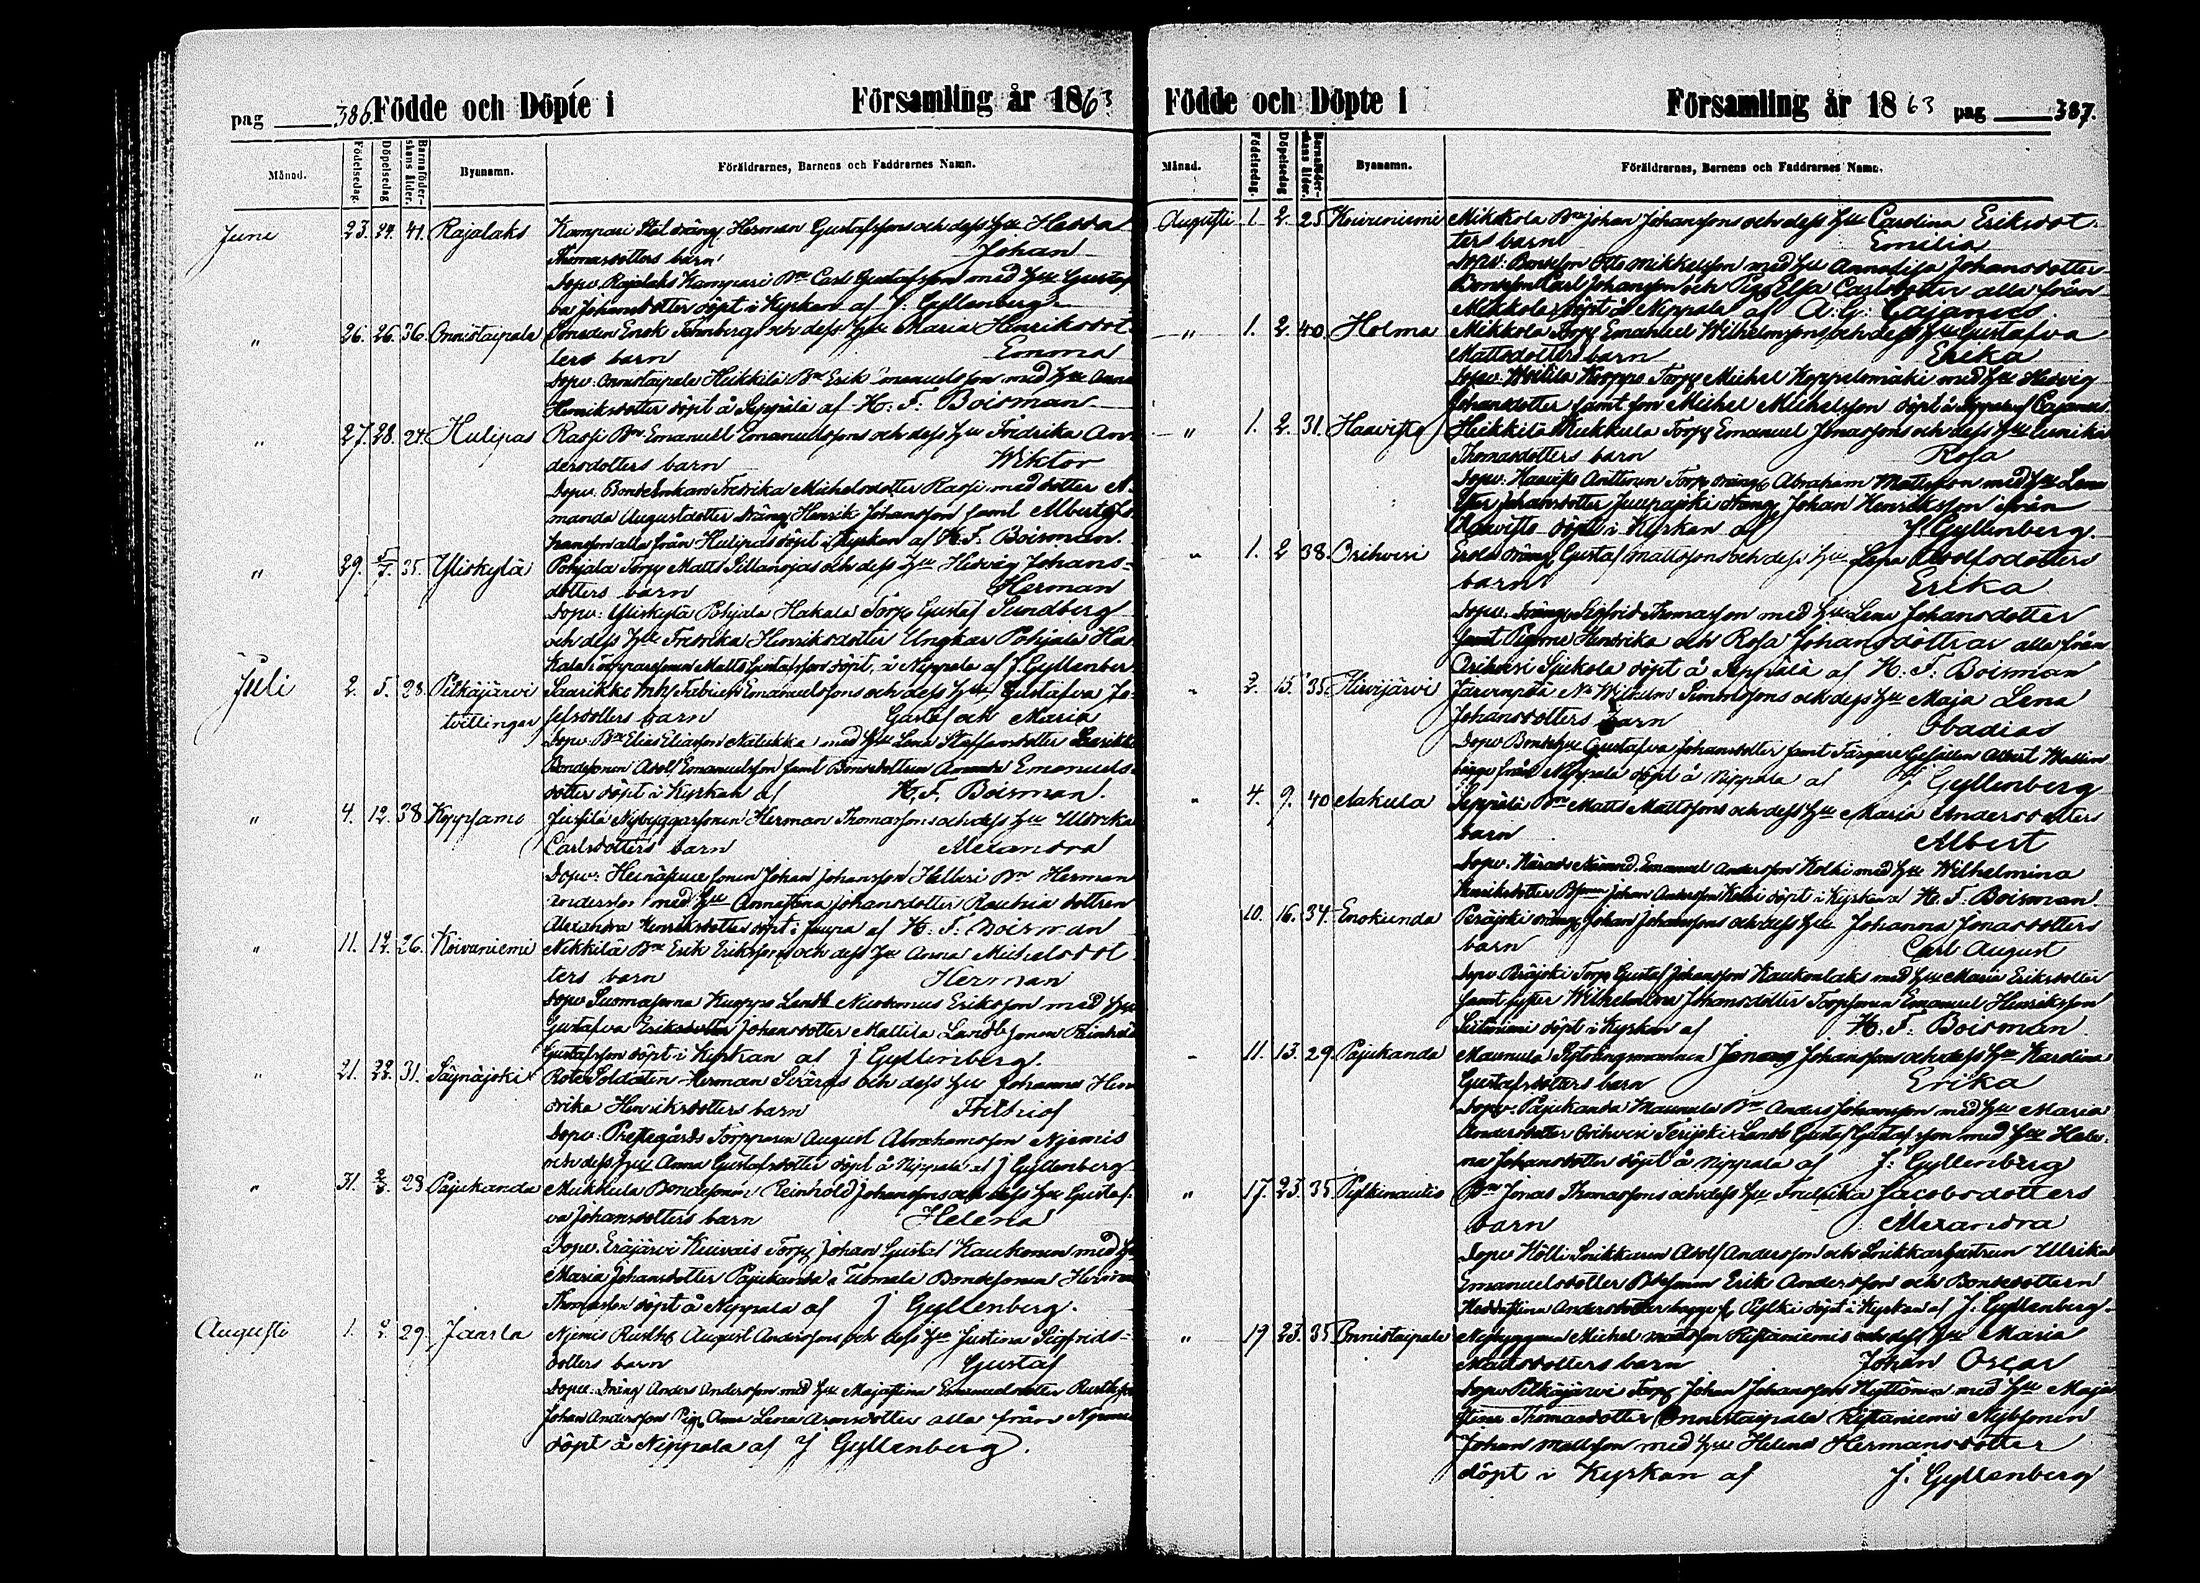 pag 386. Födde och Döpte i Församling år 1863
Månad. Födelsedag. Döpelsedag Barnaföderskans ålder. Byanamn. Föräldrarnes, Barnens och Faddrarnes Namn.
June 23. 24. 41. Rajalaks Kampari Herman Gustafssons och dess hu Hedda
Thomasdotters barn Johan
Dopv. Rajalaks Kampari Bn Carl Gustafsson med hu Gustaf
va Johansdotter döpt i Kyrkan af J. Gyllenberg
" 26. 26. 36. Onnistaipale Enok Tannberg och dess hu Maria Henriksdot
ters barn Emma
Dopv. Onnistaipale Heikkilä Bn Erik Emanuelsson med hu Anna
Henriksdotter döpt å Seppälä af H. F. Boisman
" 27. 28. 24 Hulipas Rassi Bn Emanuel Emanuelssons och dess hu Fredrika An
dersdotters barn Wiktor
Dopv. Bonde Enkan Fredrika Michelsdotter Rassi med dotter A
manda Augustdotter dräng Henrik Johansson samt Albert Jo
hansson alla från Hulipas döpt i Kyrkan af H. F. Boisman.
" 29. 5/7. 35. Yliskylä Pohjala Torp Matts Sillanojas och dess hu Hedvig Johans-
dotters barn Herman
Dopv: Yliskylä Pohjala Hakala Torp Gustaf Sundberg
och dess hu Fredrika Henriksdotter Ungkar Pohjala Ha
kala torpparesonen Matts Gustafsson döpt å Nippala af J. Gyllenber
Juli 2. 5. 28. Pitkäjärvi Saarikko Fabian Emanuelssons och dess hu Gustafva Jo
tvillingar sefsdotters barn Gustaf och Maria
Dopv. Bn Elias Eliasson Malukka med hu Lena Staffansdotter Saarikko
Bondesonen Adolf Emanuelsson samt Bondedottren Amanda Emanuels
dotter döpt i Kyrkan af H. F. Boisman.
" 4. 12. 38. Koppsamo Jussila Nybyggarsonen Herman Thomassons och dess hu Ulrika
Carlsdotters barn Alexandra
Dopv: Heinäpuu sonen Johan Johansson Helleri Bn Herman
Andersson med hu Annastina Johansdotter Rautsia dottren
Alexandra Henriksdotter döpt i Juupa af H. F. Boisman
" 11. 12. 26. Koivaniemi Nikkilä Bn Erik Erikssons och dess hu Anna Michelsdot
ters barn Herman
Dopv Suomasema Kuoppa Landb Nicodemus Eriksson med hu
Gustafva Johansdotter Mattila Landb sonen Reinhold
Gustafsson döpt i Kyrkan af J Gyllenberg.
" 21. 22. 31. Säynäjoki Rote Soldaten Herman Svärds och dess hu Johanna Hen
drika Henriksdotters barn Fridriof
Dopv: Prestegårds Torpparen August Abrahamsson Njemis
och dess hu Anna Gustafsdotter döpt å Nippala af J Gyllenberg
" 31. 2/8. 28 Pajukanda Mukkula Bondesonen Reinhold Johanssons och dess hu Gustaf-
va Johansdotters barn Helena
Dopv. Eräjärvi Kuivais Torp Johan Gustaf Kaukonen med hu
Maria Johansdotter Pajukanda Tuomala Bondesonen Herman
Thomasson döpt å Nippala af J Gyllenberg.
Augusti 1. 2. 29. Jaarla Njemis August Anderssons och dess hu Justina Sigfrids-
dotters barn Gustaf
Dopv: Dräng Anders Andersson med hu Majastina Emanuelsdotter
Johan Andersson Pig Anna Lena Aronsdotter alla från Njemis
döpt å Nippala af J Gyllenberg.
Födde och Döpte i Församling år 1863 pag 387.
Månad. Födelsedag. Döpelsedag Barnaföderskans ålder. Byanamn. Föräldrarnes, Barnens och Faddrarnes Namn.
Augusti 1. 2. 25 Koivuniemi Mikkola Bn Johan Johanssons och dess hu Carolina Eriksdot-
ters barn Emilia
Dopv: Bondeson Otto Mikkelsson med hu Annalisa Johansdotter
Bondeson Carl Johansson och Pig Elsa Carlsdotter alla från
Mikkola döpt å Nippala af A. G. Cajanus
" 1. 2. 40. Holma Mikkola Torp Emanuel Wilhelmssons och dess hu Gustafva
Mattsdotters barn Erika
Dopv: Torp Michel Koppelomäki med hu Hedvig
Johansdotter samt son Michel Michelsson döpt å Nippala af Cajanus
" 1. 2. 31. Haavisto Heikkilä Kukkula Torp Emanuel Jonassons och dess hu Eunika
Thomasdotters barn Rosa
Dopv. Haavisto Anttoun Torp dräng Abraham Mattsson med hu Lena
Johansdotter dräng Johan Henriksson från
Haavisto döpt i Kyrkan af J. Gyllenberg.
" 1. 2 38. Orihvesi Erola dräng Gustaf Mattssons och dess hu Lena Adolfsdotters
barn Erika
Dopv. dräng Sigfrid Thomasson med hu Lena Johansdotter
samt Pigorne Hendrika och Rosa Johansdöttrar alla från
Orihvesi Sjukola döpt å Seppälä af H. F. Boisman
" 2. 15. 35. Hirvijärvi Järvenpää Wilhelm Simonssons och dess hu Maja Lena
Johansdotters barn Obadias
Dopv Bondehu Gustafva Johansdotter samt Färgare Gesällen Albert Wallin
bägge från Nippala döpt å Nippala af J Gyllenberg
" 4. 9. 40 Aakula Seppäli Bn Matts Mattssons och dess hu Maria Andersdotters
barn Albert
Dopv. Härads Nämnd. Emanuel Andersson Kolhi med hu Wilhelmina
Henriksdotter Johan Andersson Kolhi döpt i Kyrkan af H. F. Boisman
10. 16. 34. Enokunda Peräjoki dräng Johan Johanssons och dess hu Johanna Jonasdotters
barn Carl August
Dopv. Peräjoki Torp Gustaf Johansson Kaukonlaks med hu Maria Eriksdotter
samt syster Wilhelmina Johansdotter Torpsonen Emanuel Henriksson
döpt i Kyrkan af H. F. Boisman
11. 13. 29. Pajukanda Maunula Sytningsmannen Jonas Johanssons och dess hu Karolina
Gustafsdotters barn Erika
Dopv. Pajukanda Maunula Bn Anders Johansson med hu Maria
Andersdotter Orihvesi Terijoki Landb Gustaf Gustafsson med hu Hele-
na Johansdotter döpt å Nippala af J: Gyllenberg
" 17. 23. 35 Pylkinautio Bn Jonas Thomassons och dess hu Fredrika Jacobsdotters
barn Alexandra
Dopv Hölli Adolf Andersson och Ulrika
Emanuelsdotter Erik Andersson och Bondedottern
Heddastina Andersdotter bägge f. Pylki döpt i Kyrkan af J. Gyllenberg
" 19 23. 35 Onnistaipale Nybyggaren Michel Mattsson Ristaniemis och dess hu Maria
Mattsdotters barn Johan Oscar
Dopv Pitkäjärvi Torp Johan Johansson Hyttönen med hu Maja
stina Thomasdotter Onnistaipale Ristaniemi Nybsonen
Johan Mattsson med hu Helena Hermansdotter
döpt i Kyrkan af J. Gyllenberg